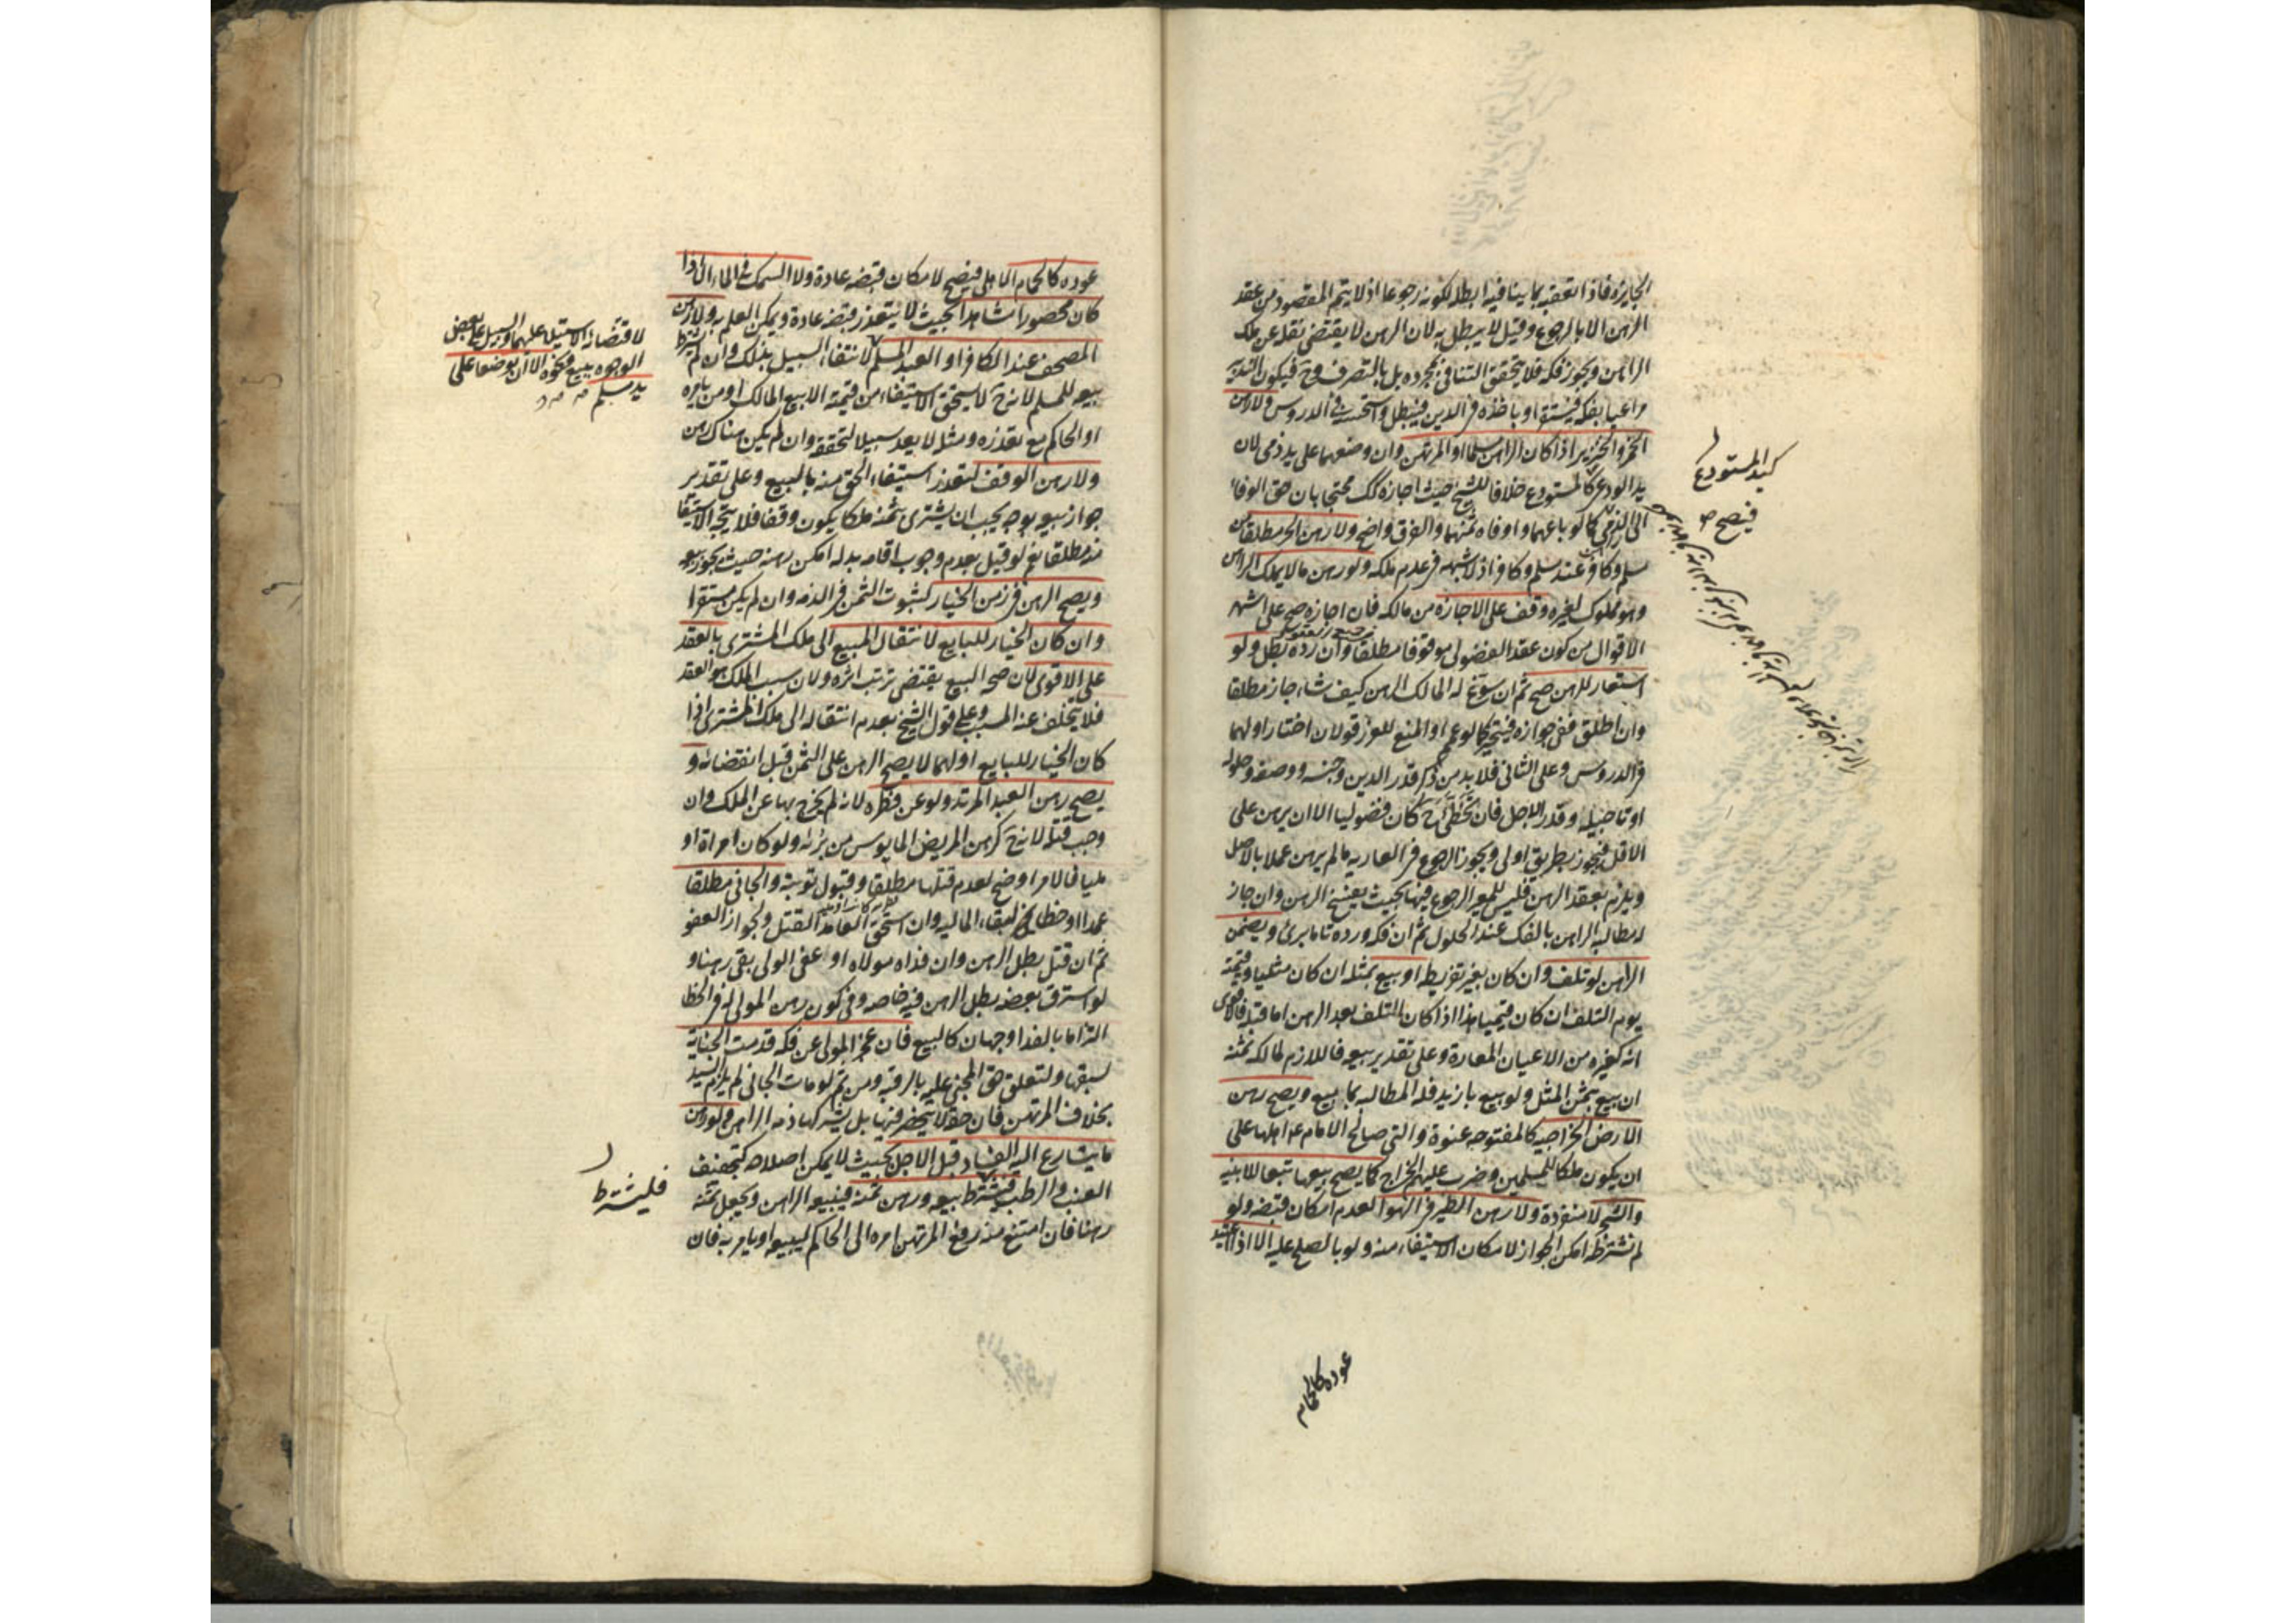 الجايزة فاذا تعقبه بما ينافيه ابطله لكونه رجوعا اذ لا يتم المقصود من عقد
الرهن الا بالرجوع وقيل لا يبطل به لان الرهن لا يقتضى نقله عن ملك
الراهن ويجوز فكه فلا يتحقق التنافى بمجرده بل بالتصرف وح فيكون التدبير
مراعيا بفكه فيستقر او باخذه فى الدين فيبطل واستحسنه فى الدروس ولا رهن
الخمر والخنزير اذا كان الراهن مسلما او المرتهن وان وضعهما على يد ذمى لان
يد الودعى كالمستودع خلافا للشيخ حيث اجازه كك محتجا بان حق الوفاء
الى الذمى كما لو باعهما واوفاه ثمنهما والفرق واضح ولا رهن الحر مطلقا من
مسلم وكافر عند مسلم وكافر اذ لا شبهة فى عدم ملكه ولو رهن ما لا يملك الراهن
وهو مملوك لغيره وقف على الاجازة من مالكه فان اجازه صح على اشهر
الاقوال من كون عقد الفضولى موقوفا مطلقا وان رده بطل ولو
استعار للرهن صح ثم ان سوغ له المالك الرهن كيف شاء جاز مطلقا
وان اطلق ففى جوازه فيتخير كما لو عمم او المنع للغرر قولان اختار اولهما
فى الدروس وعلى الثانى فلا بد من ذكر قدر الدين وجنسه ووصفه وحلوله
او تاجيله وقدر الاجل فان تخطى ح كان فضوليا الا ان يرهن على
الاقل فيجوز بطريق اولى ويجوز الرجوع فى العارية ما لم يرهن عملا بالاصل
ويلزم بعقد الرهن فليس للمعير الرجوع فيها بحيث يفسخ الرهن وان جاز
له مطالبة الراهن بالفك عند الحلول ثم ان فكه ورده تاما برئ ويضمن
الراهن لو تلف وان كان بغير تفريط او بيع بمثله ان كان مثليا وقيمته
يوم التلف ان كان قيميا هذا اذا كان التلف بعد الرهن اما قبله فالاقوى
انه كغيره من الاعيان المعارة وعلى تقدير بيعه فاللازم لمالكه ثمنه
ان بيع بثمن المثل ولو بيع بازيد فله المطالبة بما بيع ويصح رهن
الارض الخراجية كالمفتوحة عنوة والتى صالح الامام ع اهلها على
ان يكون ملكا للمسلمين وضرب عليهم الخراج كما يصح بيعها تبعا للابنية
والشجر لا منفردة ولا رهن الطير فى الهوا لعدم امكان قبضه ولو
لم نشترطه امكن الجواز لامكان الاستيفاء منه ولو بالصلح عليه الا اذا اعتيد
كيد المستودع
فيصح
عوده كالحمام
عوده كالحمام الاهلى فيصح لامكان قبضه عادة ولا السمك فى الماء الا اذا
كان محصورا مشاهدا بحيث لا يتعذر قبضه عادة ويمكن العلم به ولا رهن
المصحف عند الكافر او العبد المسلم لانتفاء السبيل بذلك وان لم يشترط
بيعه للمسلم لانه ح لا يستحق الاستيفاء من قيمته الا ببيع المالك او من يامره
او الحاكم مع تعذره ومثله لا يعد سبيلا لتحققه وان لم يكن هناك رهن
ولا رهن الوقف لتعذر استيفاء الحق منه بالبيع وعلى تقدير
جواز بيعه بوجه يجب ان يشترى بثمنه ملكا يكون وقفا فلا يتجه الاستيفاء
منه مطلقا نعم لو قيل بعدم وجوب اقامة بدله امكن رهنه حيث يجوز بيعه
ويصح الرهن فى زمن الخيار لثبوت الثمن فى الذمة وان لم يكن مستقرا
وان كان الخيار للبايع لانتقال المبيع الى ملك المشترى بالعقد
على الاقوى لان صحة البيع يقتضى ترتب اثره ولان سبب الملك هو العقد
فلا يتخلف عنه المسبب وعلى قول الشيخ بعدم انتقاله الى ملك المشترى اذا
كان الخيار للبايع او لهما لا يصح الرهن على الثمن قبل انقضائه و
يصح رهن العبد المرتد ولو عن فطرة لانه لم يخرج بها عن الملك وان
وجب قتله لانه ح كرهن المريض المايوس من برئه ولو كان امراة او
مليا فالامر اوضح لعدم قتلها مطلقا وقبول توبته والجانى مطلقا
عمدا او خطا لبقاء المالية وان استحق العامد القتل ولجواز العفو
ثم ان قتل بطل الرهن وان فداه مولاه او عفى الولى بقى رهنا و
لو استرق بعضه بطل الرهن فيه خاصة وفى كون رهن المولى له فى الخطا
التزاما بالفدا وجهان كالبيع فان عجز المولى عن فكه قدمت الجناية
لسبقها ولتعلق حق المجنى عليه بالرقبة ومن ثم لو مات الجانى لم يلزم السيد
بخلاف المرتهن فان حقه لا ينحصر فيها بل يشركها ذمة الراهن ولو رهن
ما يتسارع اليه الفساد قبل الاجل بحيث لا يمكن اصلاحه كتجفيف
العنب والرطب فيشترط بيعه ورهن ثمنه فيبيعه الراهن ويجعل ثمنه
رهنا فان امتنع منه رفع المرتهن امره الى الحاكم ليبيعه او يامر به فان
لاقتضائه الاستيلاء عليهما والسبيل على بعض
الوجوه ببيع ونحوه الا ان يوضعا على
يد مسلم
فليشترط